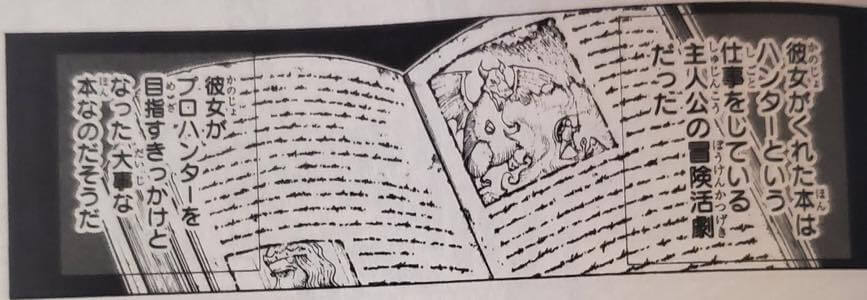 彼女がくれた本は
ハンターという
仕事をしている
主人公の冒険活劇
だった
彼女が
プロハンターを
目指すきっかけと
なった大事な
本なのだそうだ